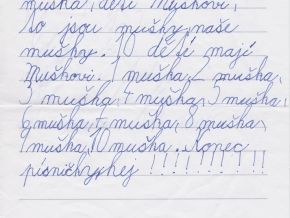 muška, děti Muškovi,
to jsou mušky, naše
mušky. 10 dětí mají
Muškovi. 1 muška, 2 muška,
3 muška, 4 muška, 5 muška,
6 muška, 7 muška, 8 muška,
9 muška, 10 muška. Konec
písničky, hej !!!!!!!!